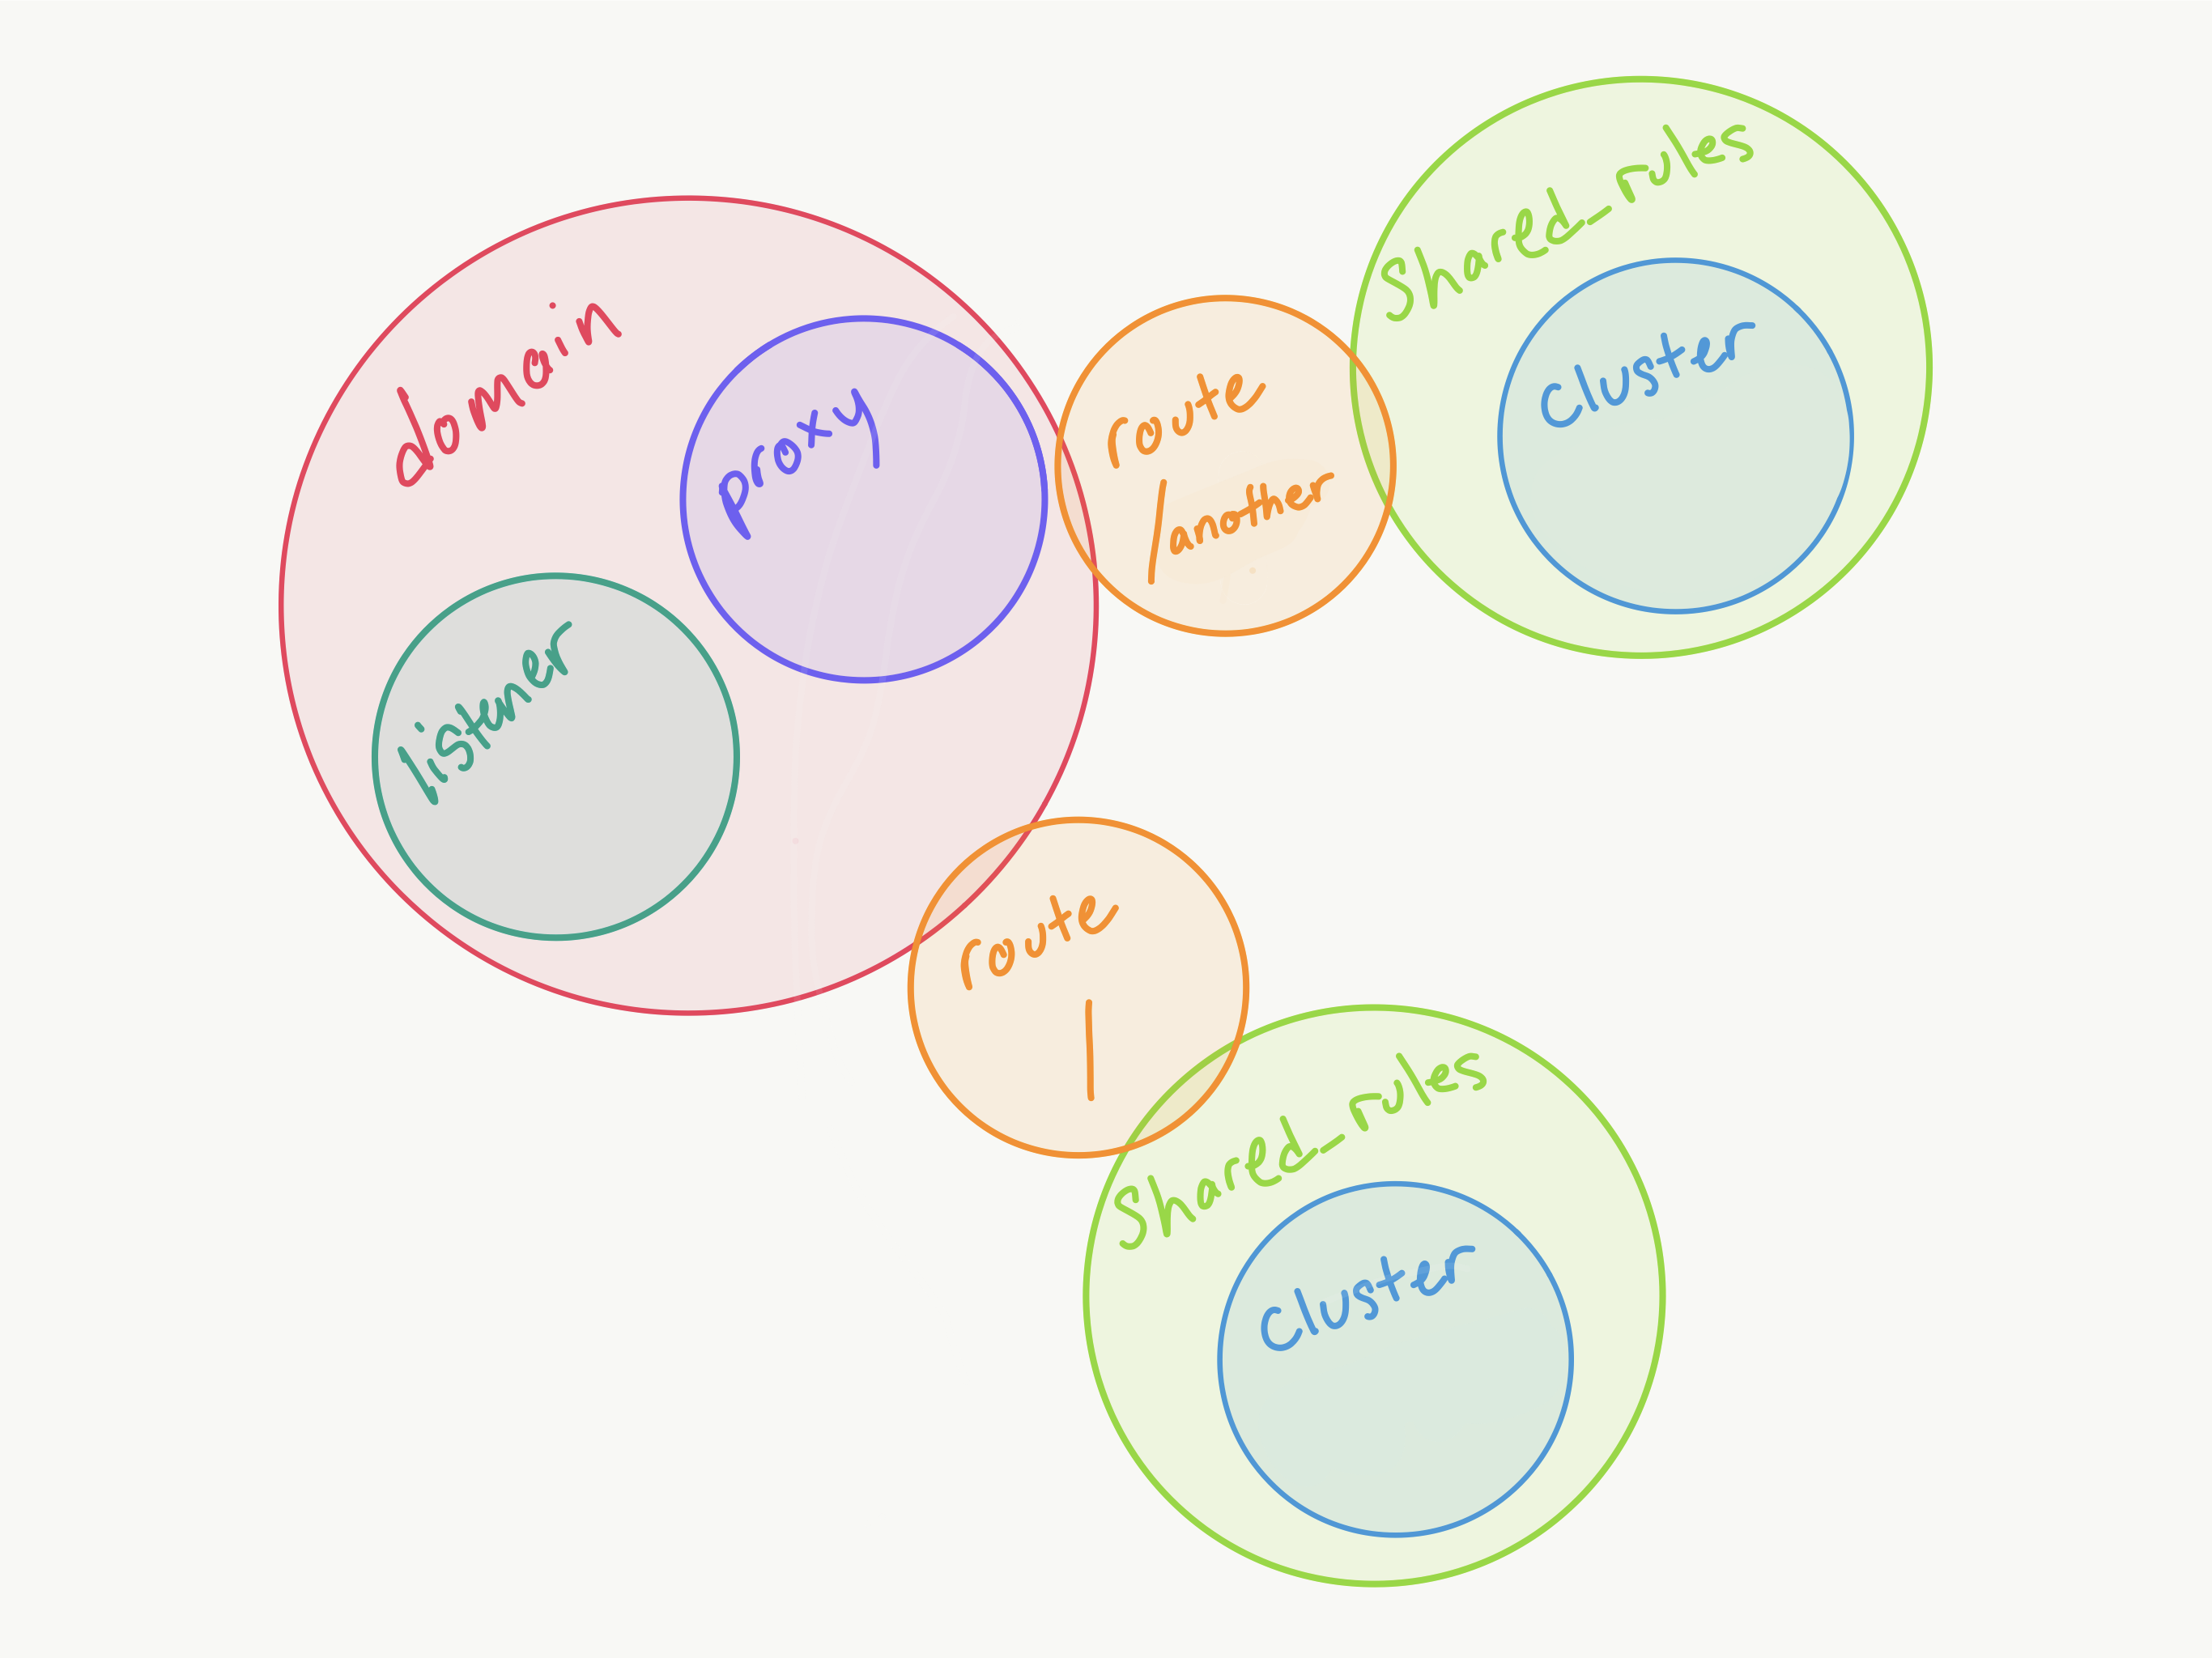 domain
proxy
listener
route
/another
shared_rules
cluster
route
/
shared_rules
cluster